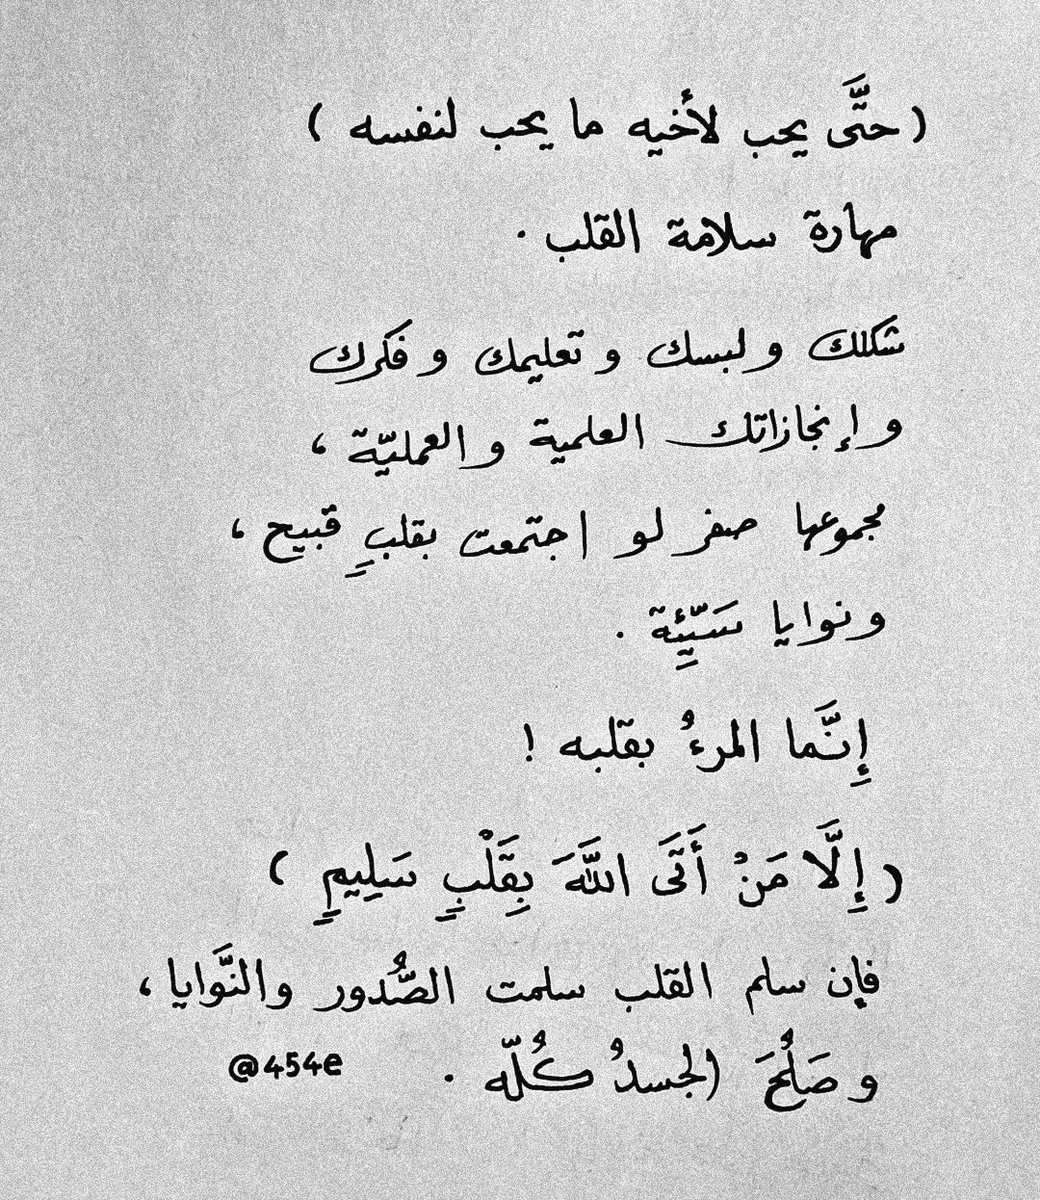 ( حتَّى يحب لأخيه ما يحب لنفسه )
مهارة سلامة القلب .
شكلك ولبسك وتعليمك وفكرك
وإنجازاتك العلمية والعمليّة ،
مجموعها صفر لو اجتمعت بقلبٍ قبيح ،
ونوايا سَيّئِة .
إِنَّما المرءُ بقلبه !
( إِلَّا مَنْ أَتَى اللَّهَ بِقَلْبٍ سَلِيمٍ )
فإن سلم القلب سلمت الصُّدور والنَّوايا ،
وصَلُحَ الجسدُ كُلّه . @454e